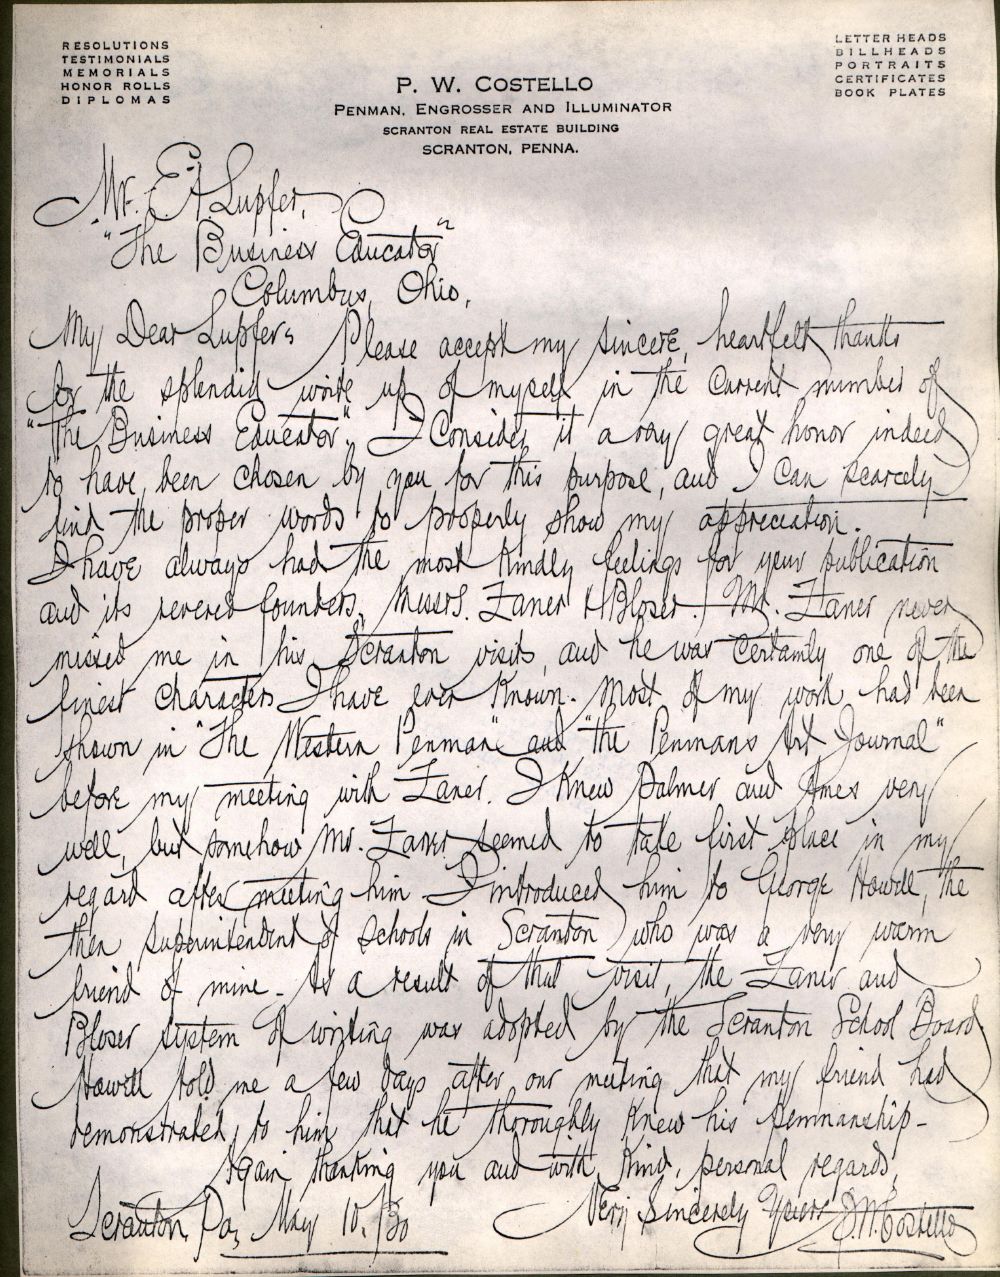 RESOLUTIONS
TESTIMONIALS
MEMORIALS
HONOR ROLLS
DIPLOMAS
LETTER HEADS
BILLHEADS
PORTRAITS
CERTIFICATES
BOOK PLATES
P. W. COSTELLO
PENMAN, ENGROSSER AND ILLUMINATOR
SCRANTON REAL ESTATE BUILDING
SCRANTON, PENNA.
Mr. E.A. Lupfer,
"The Business Educator"
Columbus, Ohio,
My Dear Lupfer: Please accept my sincere, heartfelt thanks
for the splendid write up of myself in the current number of
"The Business Educator". I consider it a very great honor indeed
to have been chosen by you for this purpose, and I can scarcely
find the proper words to properly show my appreciation.
I have always had the most kindly feelings for your publication
and its revered founders, Messrs. Zaner & Bloser. Mr. Zaner never
missed me in his Scranton visits, and he was certainly one of the
finest characters I have ever known. Most of my work had been
shown in "The Western Penman" and "the Penmans Art Journal"
before my meeting with Zaner. I knew Palmer and Ames very
well, but somehow Mr. Zaner seemed to take first place in my
regard after meeting him. I introduced him to George Howell, the
then superintendent of schools in Scranton who was a very warm
friend of mine - As a result of that visit, the Zaner and
Bloser system of writing was adopted by the Scranton School Board
Howell told me a few days after our meeting that my friend had
demonstrated to him that he thoroughly knew his penmanship -
Again thanking you and with kind, personal regards,
Scranton, Pa, May 10, '30 Very Sincerely Yours P.W. Costello